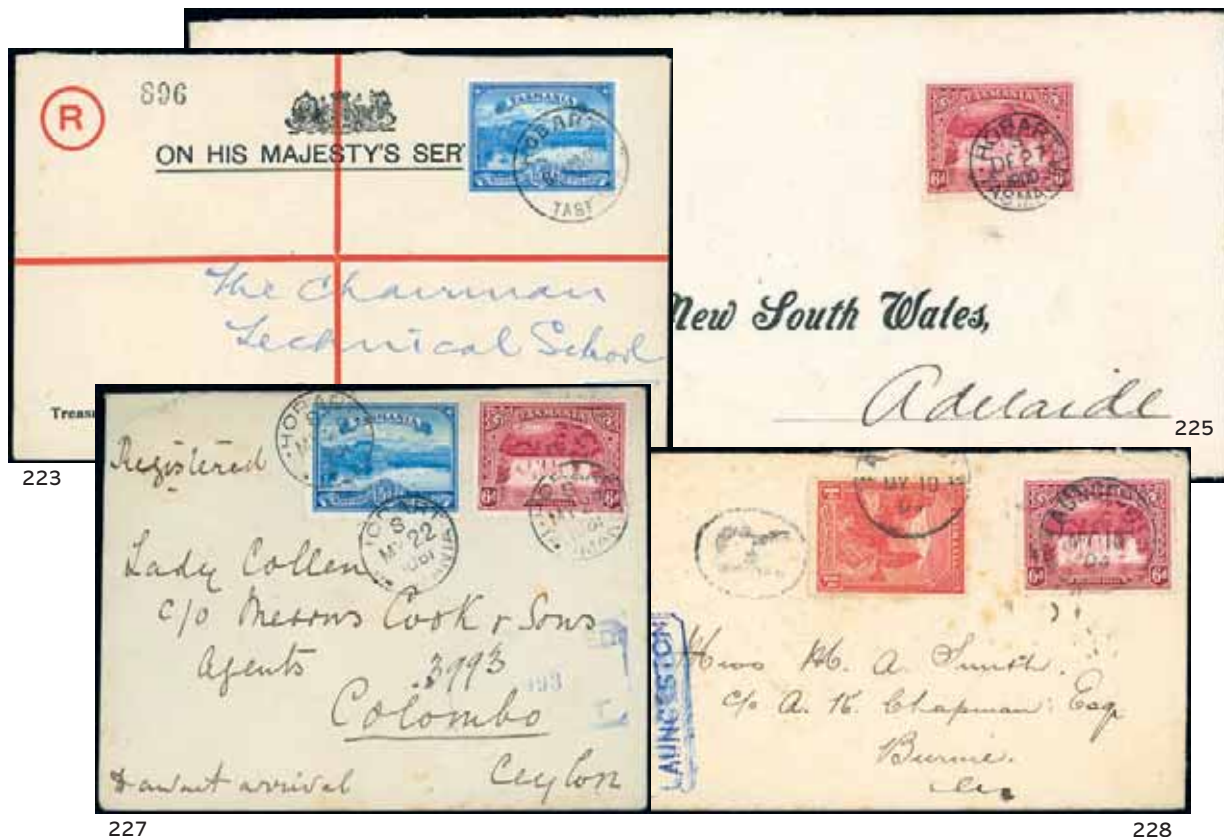 R
896
ON HIS MAJESTY'S SER
TASMANIA
HOBART
TAS
The Chairman
Technical School
Treas
223
TASMANIA
6d 6d
HOBART
DE 21
1900
TASMA
New South Wales,
Adelaide
225
Registered
HOBART
TASMANIA
TASMANIA
6d 6d
HOBART
S
MY 22
Lady Collen
c/o Messrs Cook & Sons
Agents
3993
Colombo
Ceylon
& await arrival
227
MY 10
TASMANIA
6d 6d
LAUNCESTON
LAUNCESTON
Miss M. A. Smith.
c/o A. K. Chapman Esq
Burnie.
228